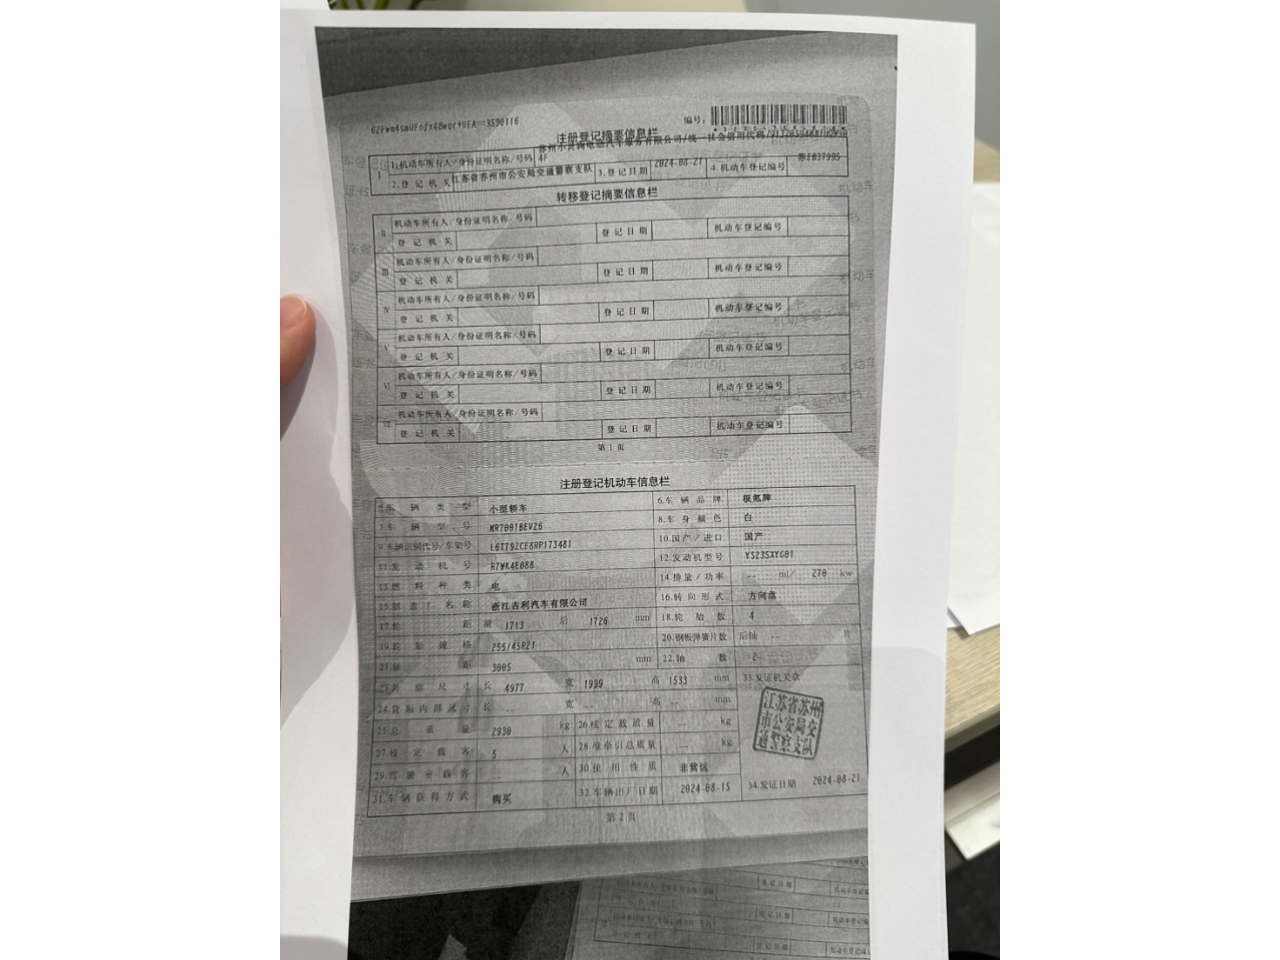 编号：
注册登记摘要信息栏
Ⅰ 1.机动车所有人/身份证明名称/号码
4F
2.登记机关 江苏省苏州市公安局交通警察支队 3.登记日期 2024-08-21 4.机动车登记编号
转移登记摘要信息栏
Ⅱ 机动车所有人/身份证明名称/号码
登记机关 登记日期 机动车登记编号
Ⅲ 机动车所有人/身份证明名称/号码
登记机关 登记日期 机动车登记编号
Ⅳ 机动车所有人/身份证明名称/号码
登记机关 登记日期 机动车登记编号
Ⅴ 机动车所有人/身份证明名称/号码
登记机关 登记日期 机动车登记编号
Ⅵ 机动车所有人/身份证明名称/号码
登记机关 登记日期 机动车登记编号
Ⅶ 机动车所有人/身份证明名称/号码
登记机关 登记日期 机动车登记编号
第1页
注册登记机动车信息栏
5.车辆类型 小型轿车 6.车辆品牌 极氪牌
7.车辆型号 MR7001BEV26 8.车身颜色 白
9.车辆识别代号/车架号 L6T79ZCE8RP173481 10.国产/进口 国产
11.发动机号 R7WK4E088 12.发动机型号 YS235XYG01
13.燃料种类 电 14.排量/功率 -- ml/ 270 kw
15.制造厂名称 浙江吉利汽车有限公司 16.转向形式 方向盘
17.轮距 前 1713 后 1726 mm 18.轮胎数 4
19.轮胎规格 255/45R21 20.钢板弹簧片数 后轴 -- 片
21.轴距 3005 mm 22.轴数 2
23.外廓尺寸 长 4977 宽 1999 高 1533 mm 33.发证机关章
24.货厢内部尺寸 长 -- 宽 -- 高 -- mm
江苏省苏州
市公安局交
通警察支队
25.总质量 2930 kg 26.核定载质量 -- kg
27.核定载客 5 人 28.准牵引总质量 -- kg
29.驾驶室载客 -- 人 30.使用性质 非营运
31.车辆获得方式 购买 32.车辆出厂日期 2024-08-15 34.发证日期 2024-08-21
第2页